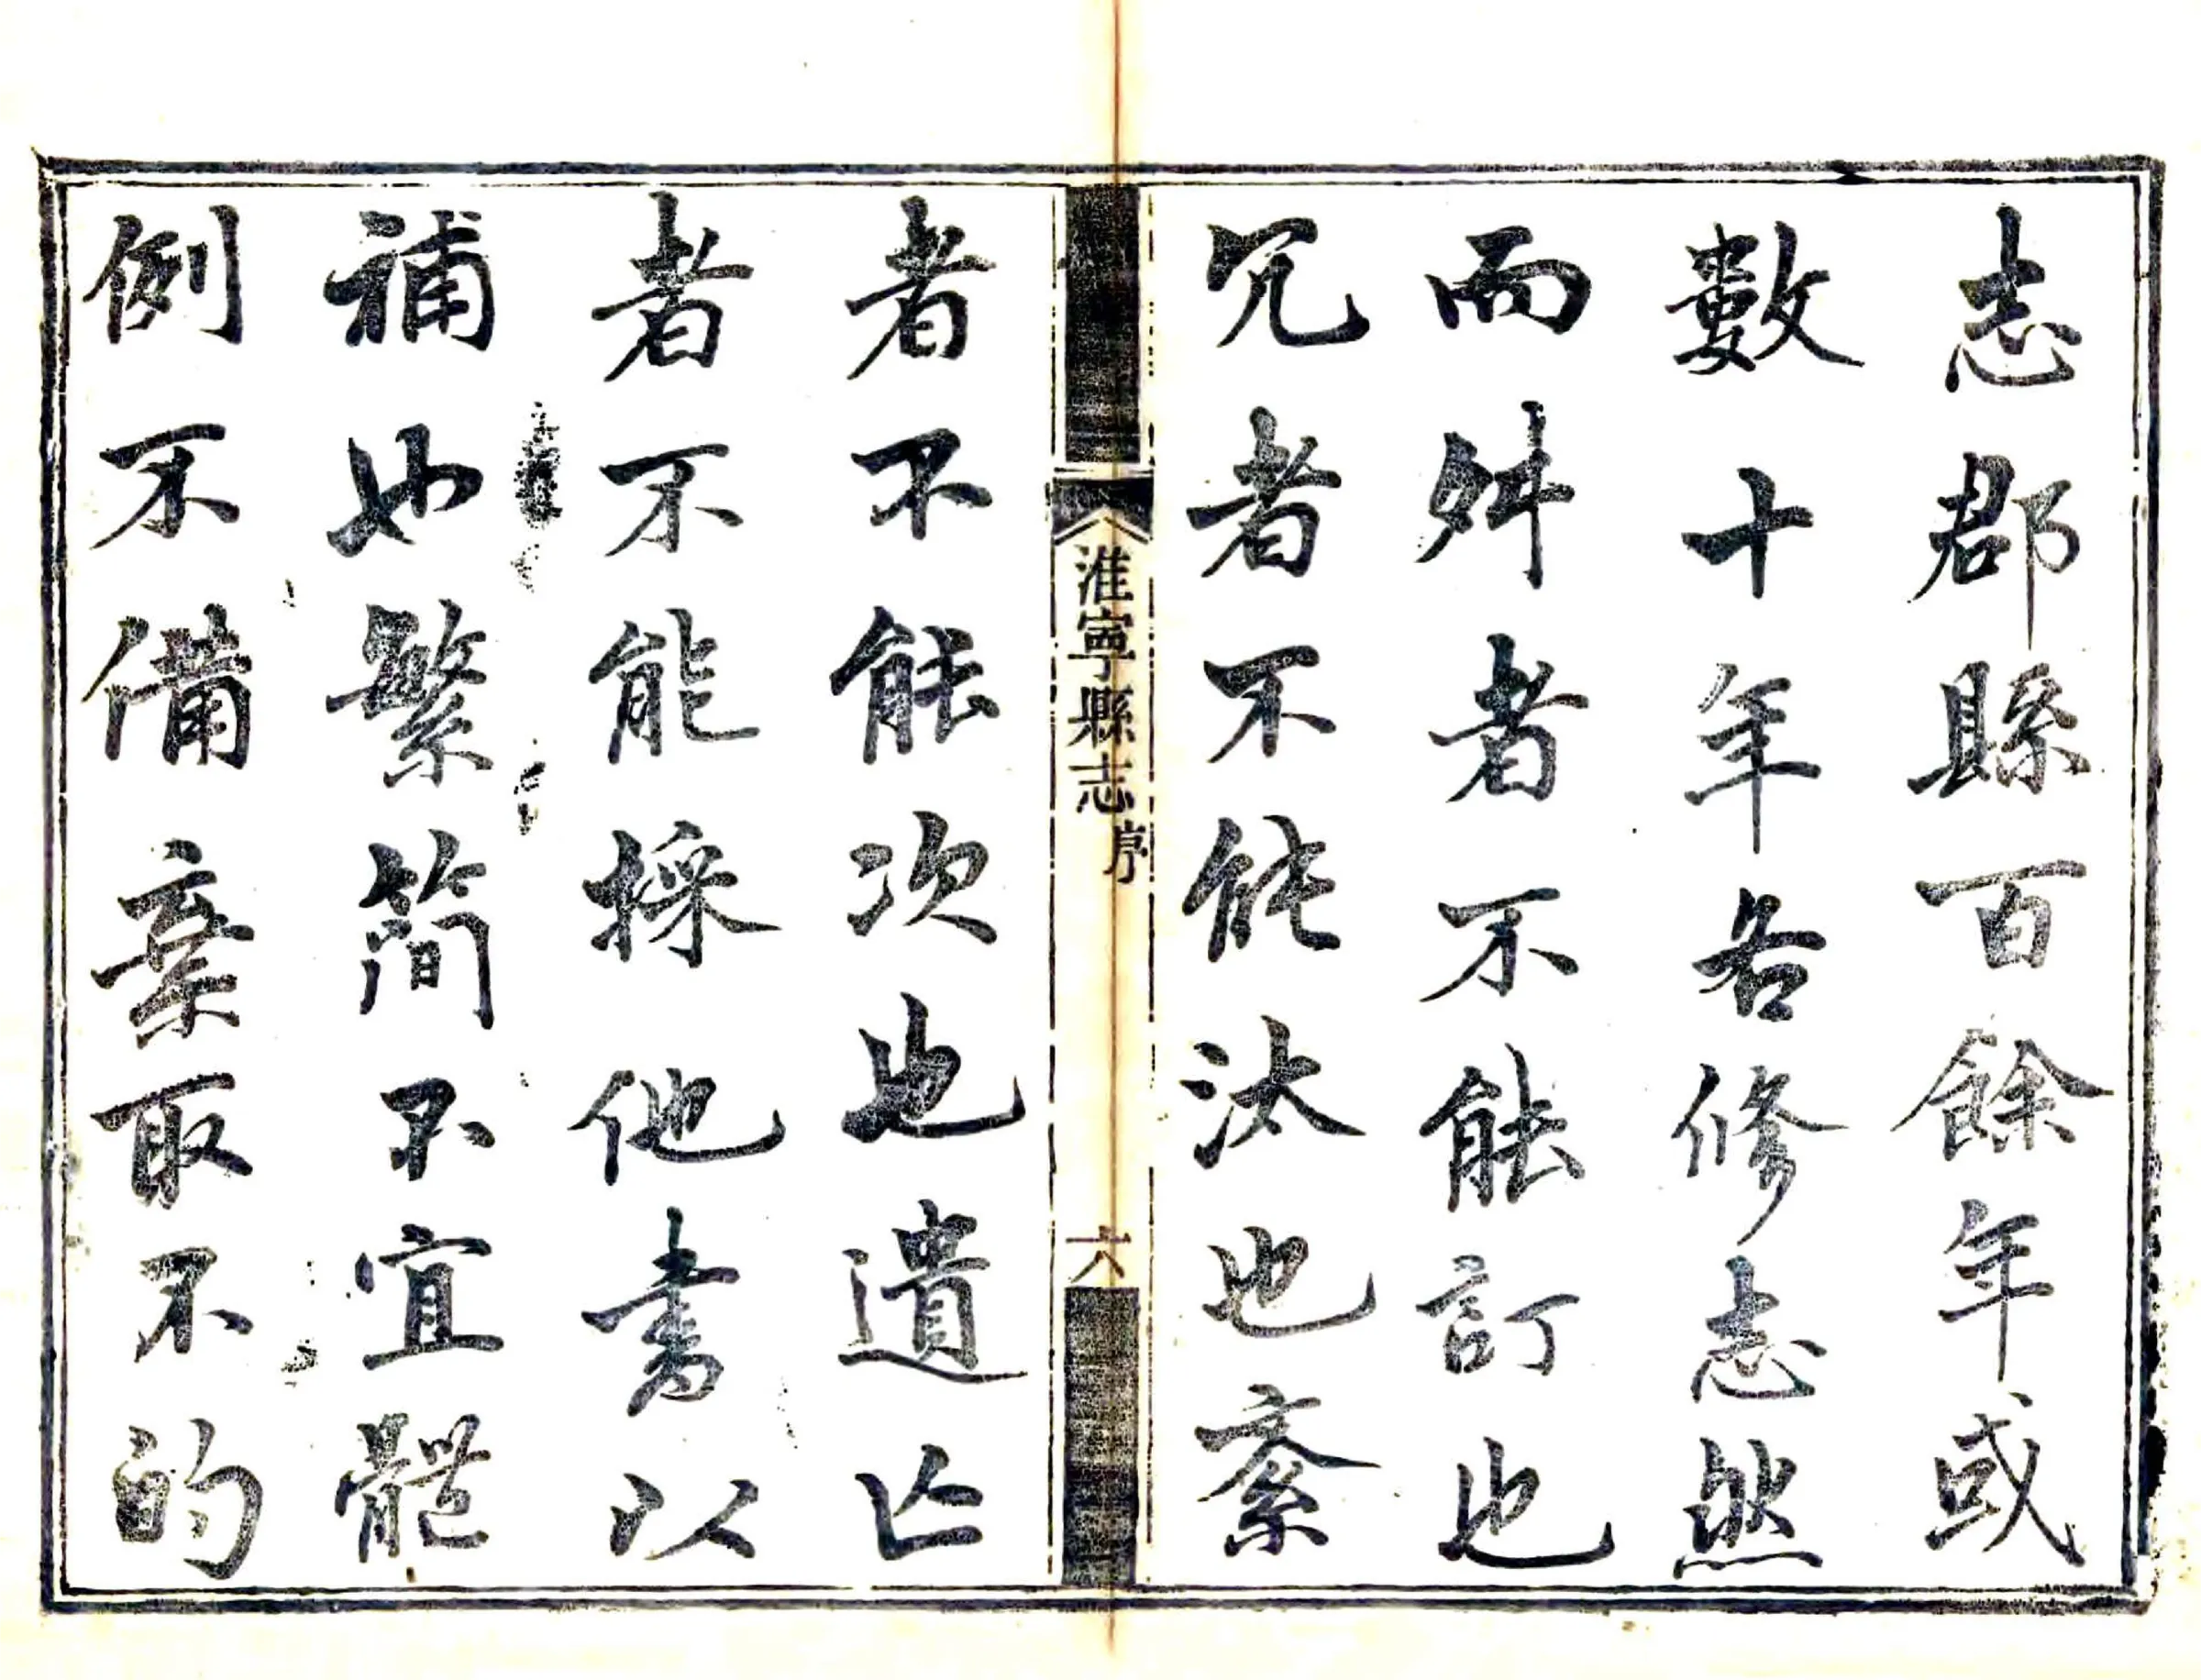 志郡縣百餘年或
數十年各修志然
而舛者不能訂也
冗者不能汰也紊
淮寧縣志
序
六
者不能次也遺亡
者不能採他書以
補也繁簡不宜體
例不備棄取不的